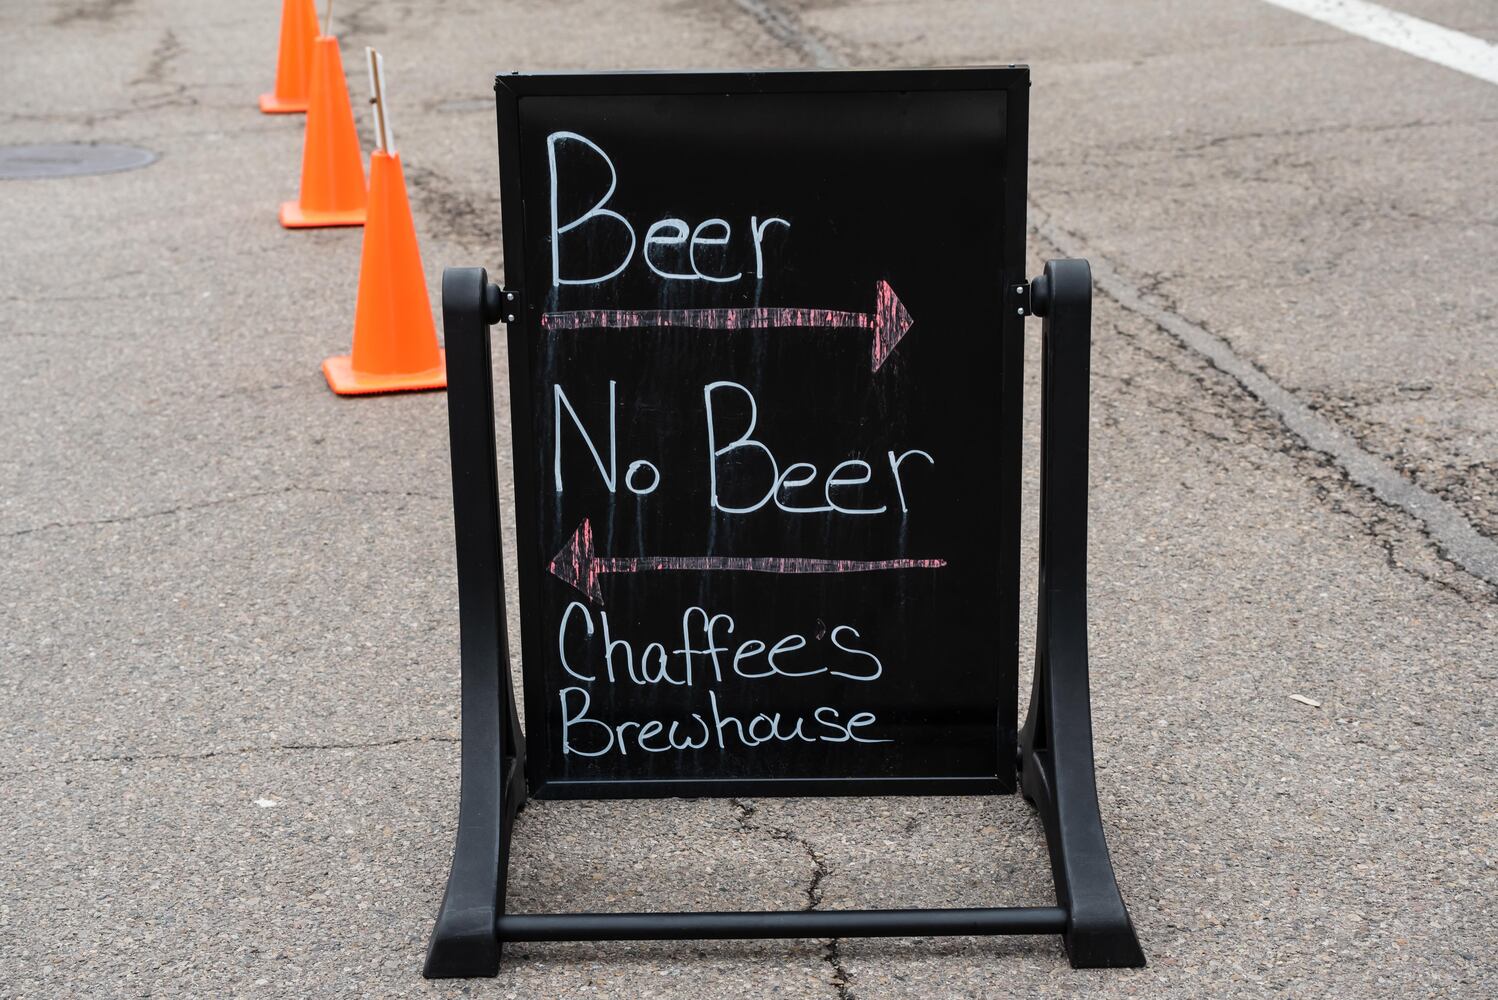 Beer
No Beer
Chaffee's
Brewhouse